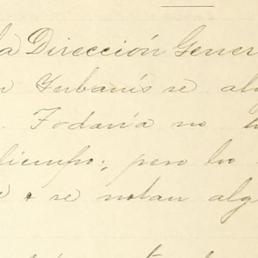 la Dirección Gener
se al
. Todavía no
tiempo; pero lo
se notan alg